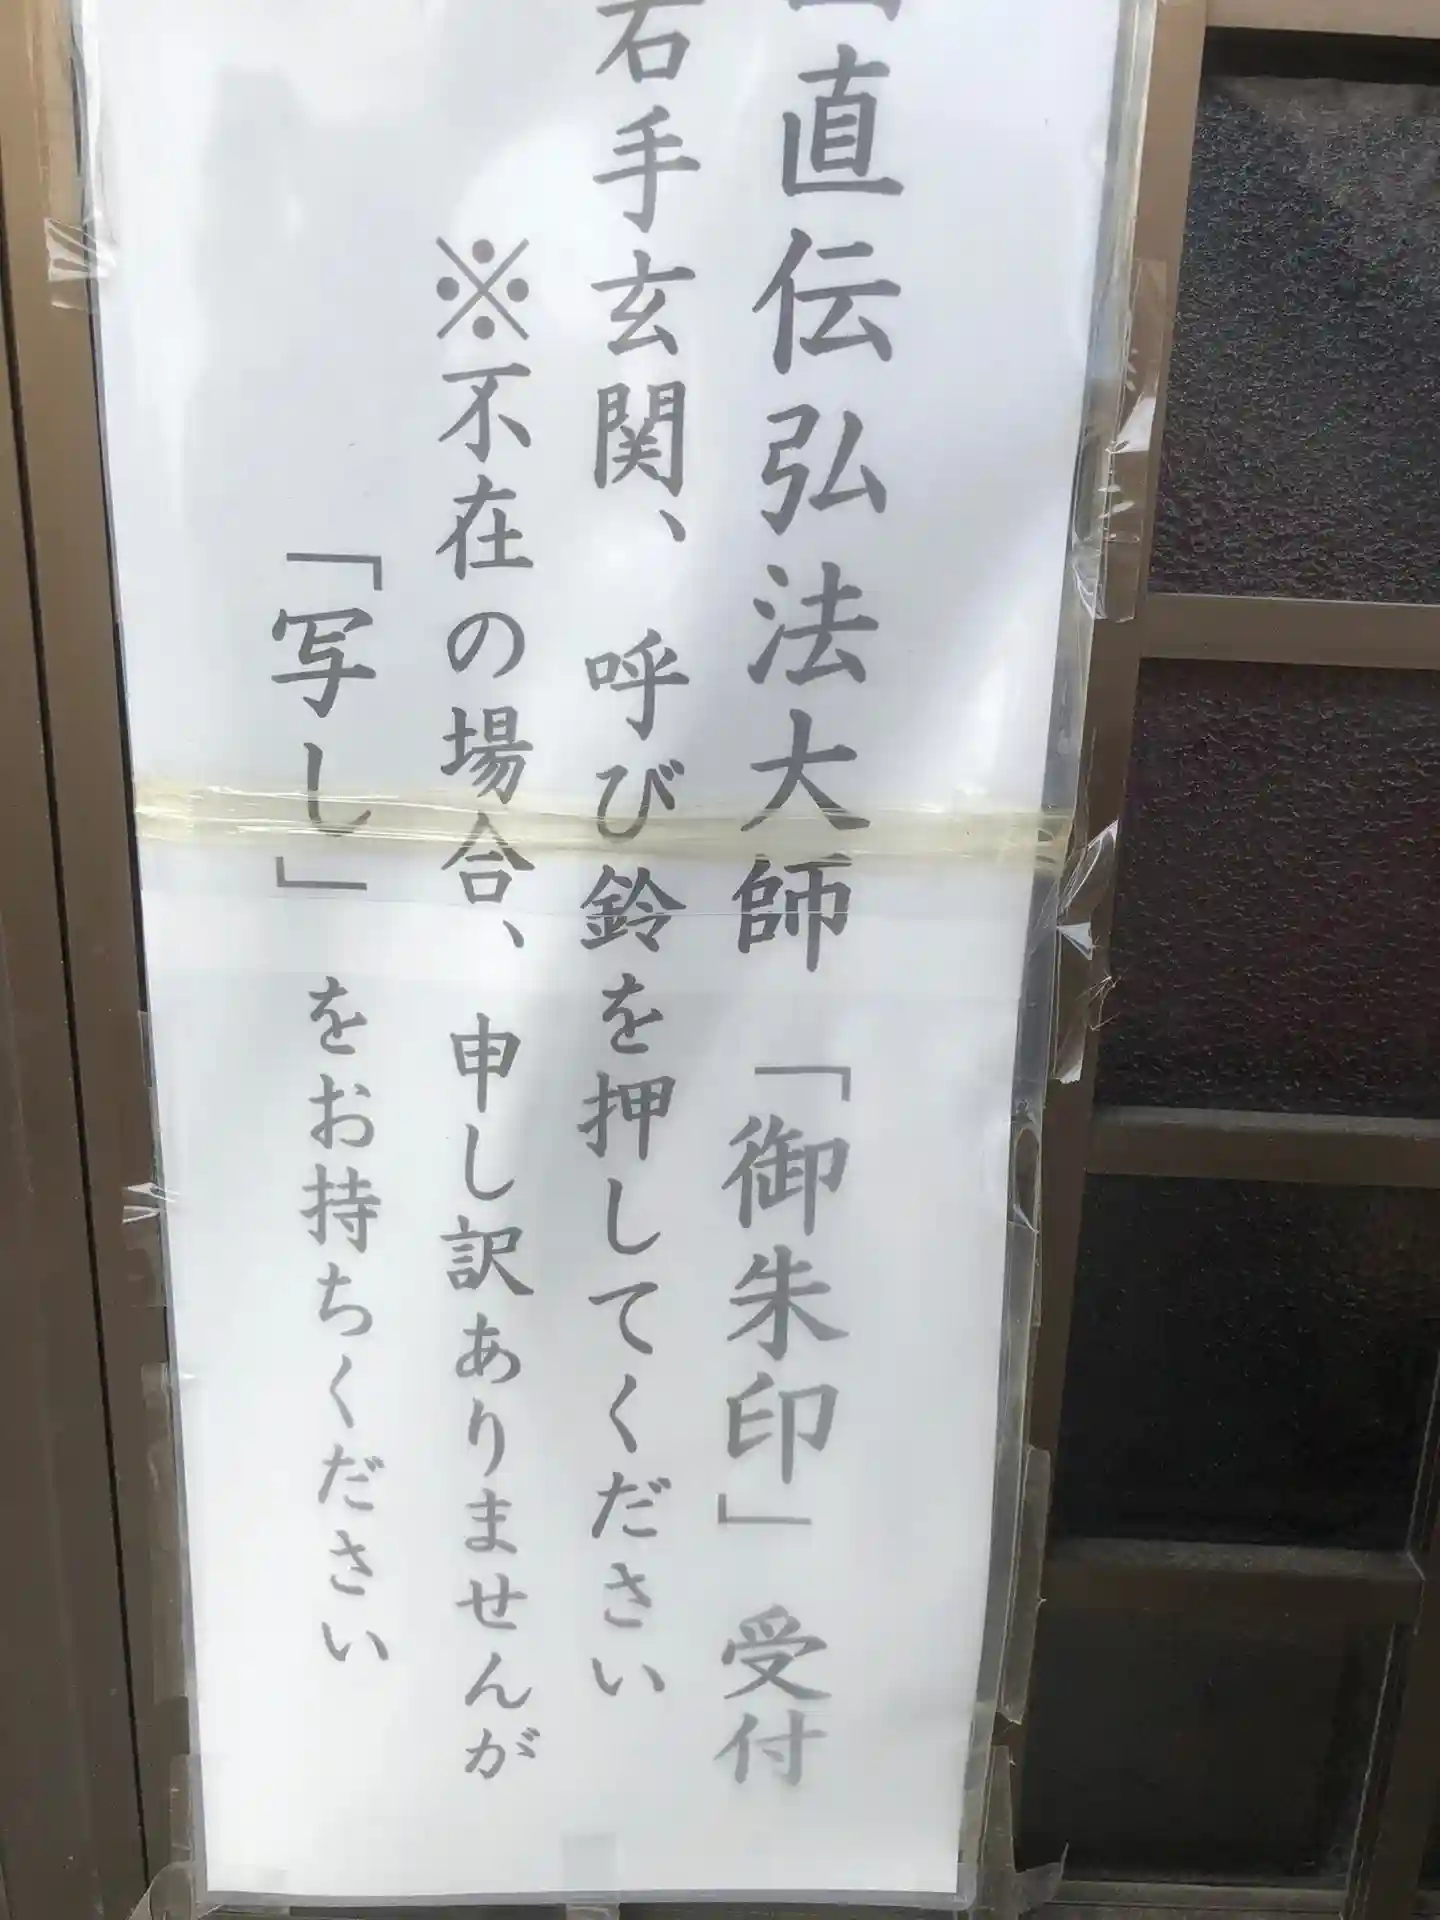 直伝弘法大師「御朱印」受付
右手玄関、呼び鈴を押してください
※不在の場合、申し訳ありませんが
「写し」をお持ちください